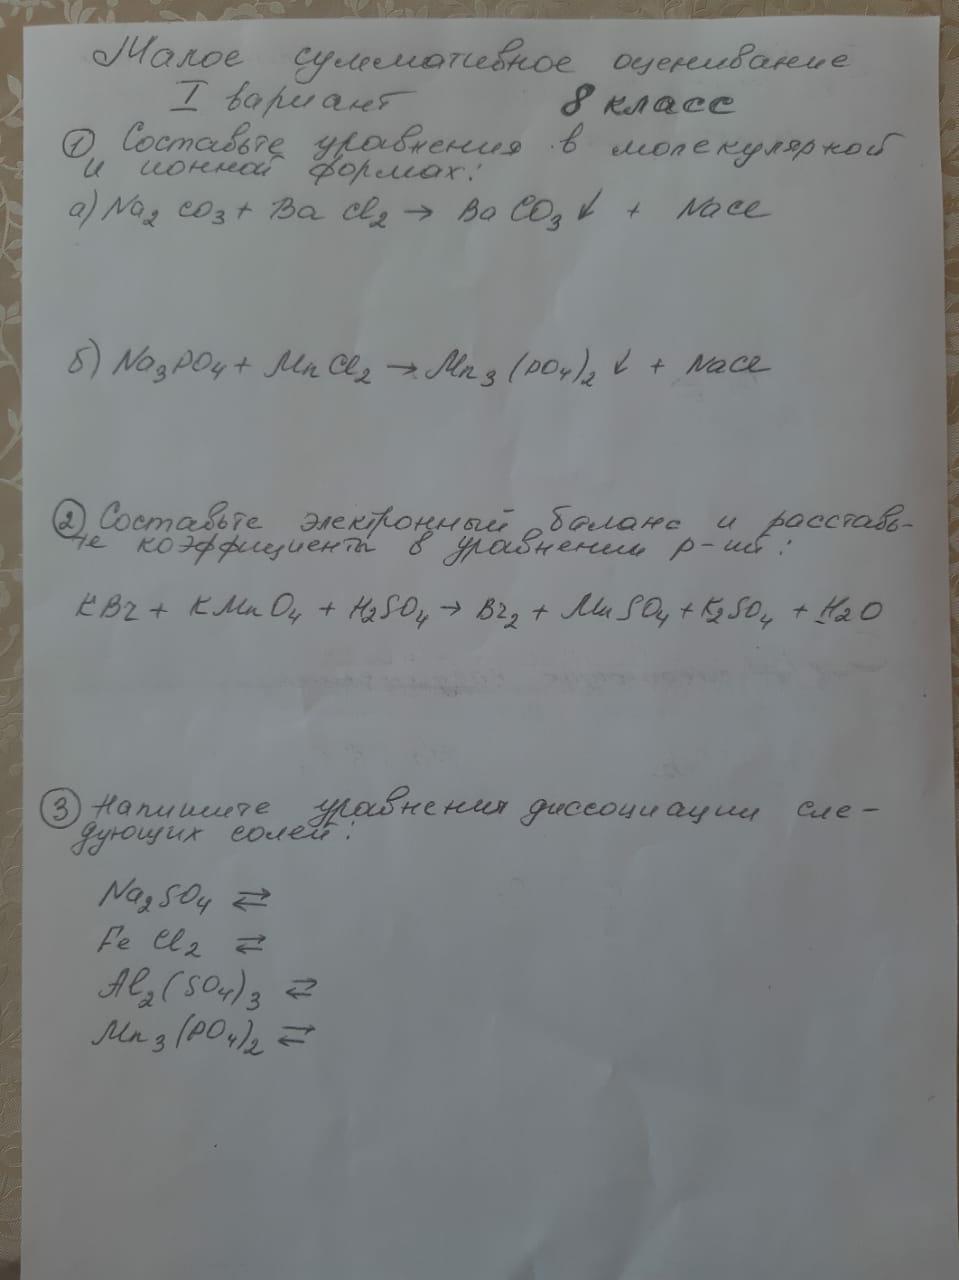 Малое суммативное оценивание
I вариант 8 класс
① Составьте уравнения в молекулярной
и ионной формах:
а) Na₂CO₃ + BaCl₂ → BaCO₃↓ + NaCl
б) Na₃PO₄ + MnCl₂ → Mn₃(PO₄)₂↓ + NaCl
② Составьте электронный баланс и расставь-
те коэффициенты в уравнении р-ий:
KBr + KMnO₄ + H₂SO₄ → Br₂ + MnSO₄ + K₂SO₄ + H₂O
③ Напишите уравнения диссоциации сле-
дующих солей:
Na₂SO₄ ⇄
FeCl₂ ⇄
Al₂(SO₄)₃ ⇄
Mn₃(PO₄)₂ ⇄